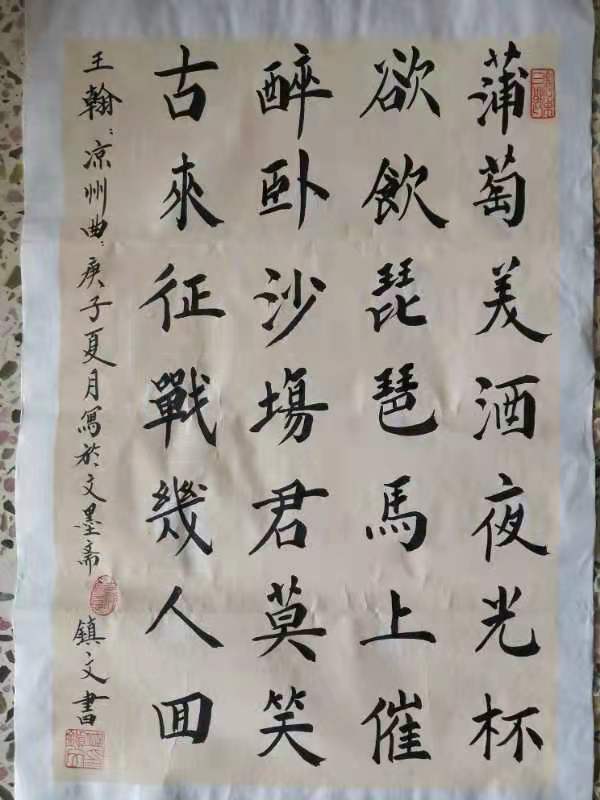 蒲萄美酒夜光杯
欲飲琵琶馬上催
醉卧沙塲君莫笑
古來征戰幾人囬
王翰：凉州曲：庚子夏月寫於文墨斋
鎮文書